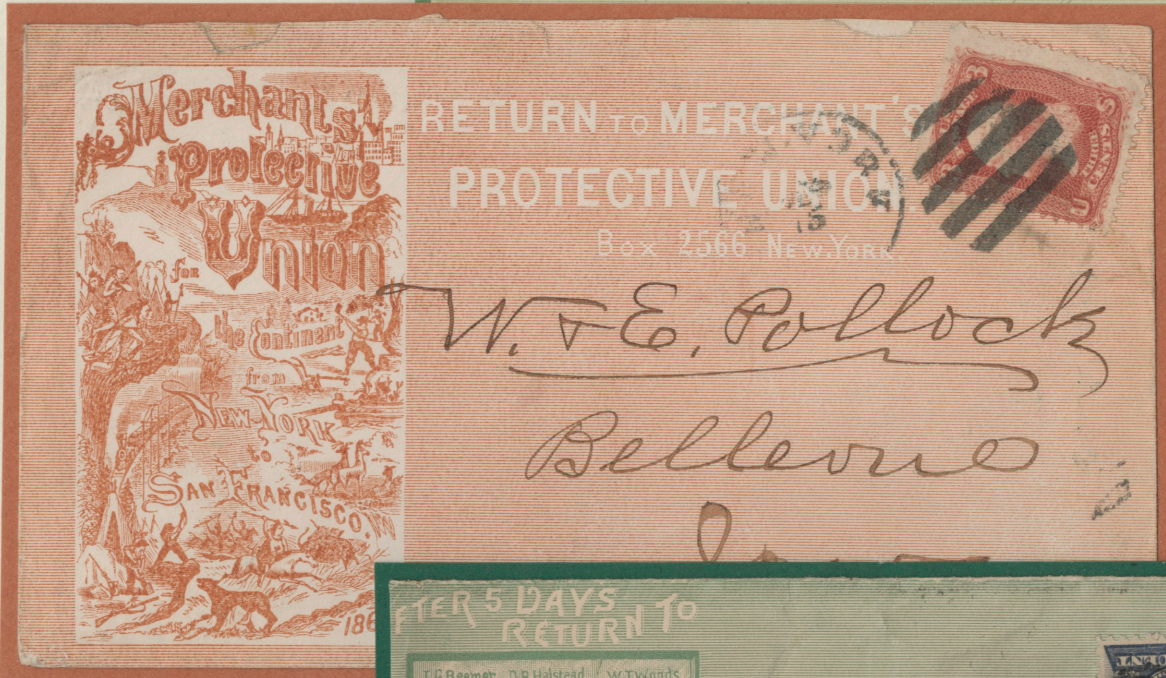 Merchants
Protective
Union
for
the Continent
from
NEW-YORK
to
SAN FRANCISCO.
186
RETURN TO MERCHANT'S
PROTECTIVE UNION.
Box 2566 NEW.YORK.
W. & E. Pollock
Bellevue
FTER 5 DAYS
RETURN TO
D.R. Halstead
W.T. Woods